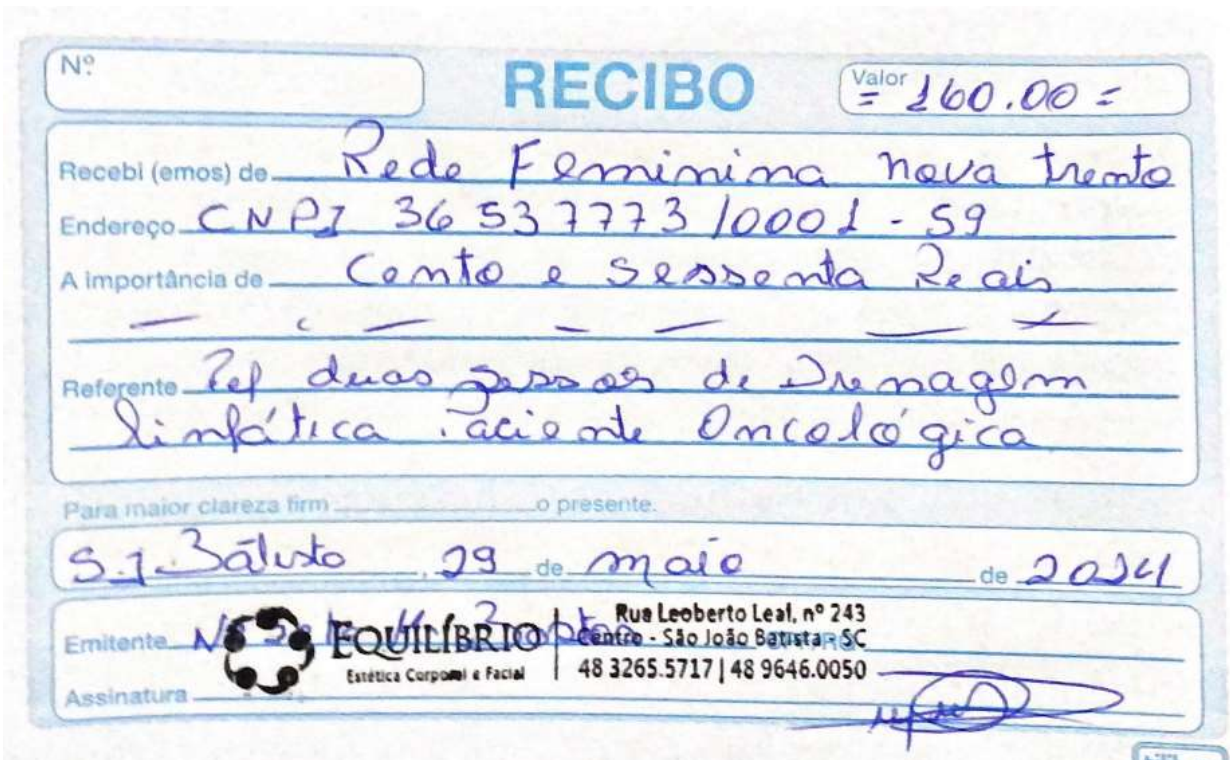 Nº
RECIBO
Valor = 160.00 =
Recebi (emos) de Rede Feminina nova trento
Endereço CNPJ 36 537773/0001-59
A importância de Cento e Sessenta Reais
Referente Ref duas sessoes de Drenagem
linfática Paciente Oncológica
Para maior clareza firm o presente.
S.J. Batista, 29 de maio de 2024
Emitente
EQUILÍBRIO
Estética Corporal e Facial
Rua Leoberto Leal, nº 243
Centro - São João Batista - SC
48 3265.5717 | 48 9646.0050
Assinatura